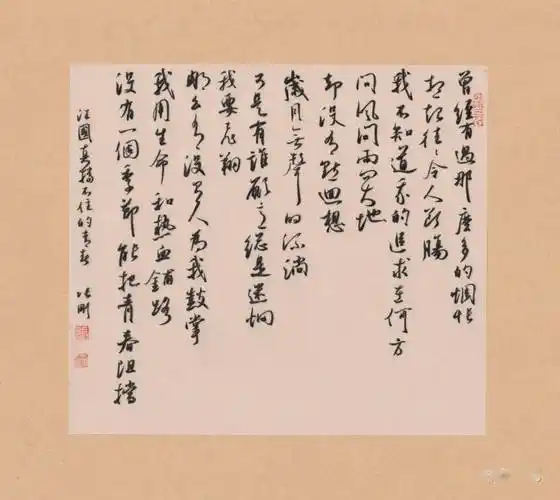 曾經有過那麼多的惆悵
想起往事令人斷腸
我不知道我的追求在何方
問風問雨問大地
却沒有點回想
歲月無聲的流淌
可是有誰願意總是迷惘
我要飛翔
哪怕沒有人為我鼓掌
我用生命和熱血鋪路
沒有一個季節能把青春阻擋
汪國真擋不住的青春 張剛